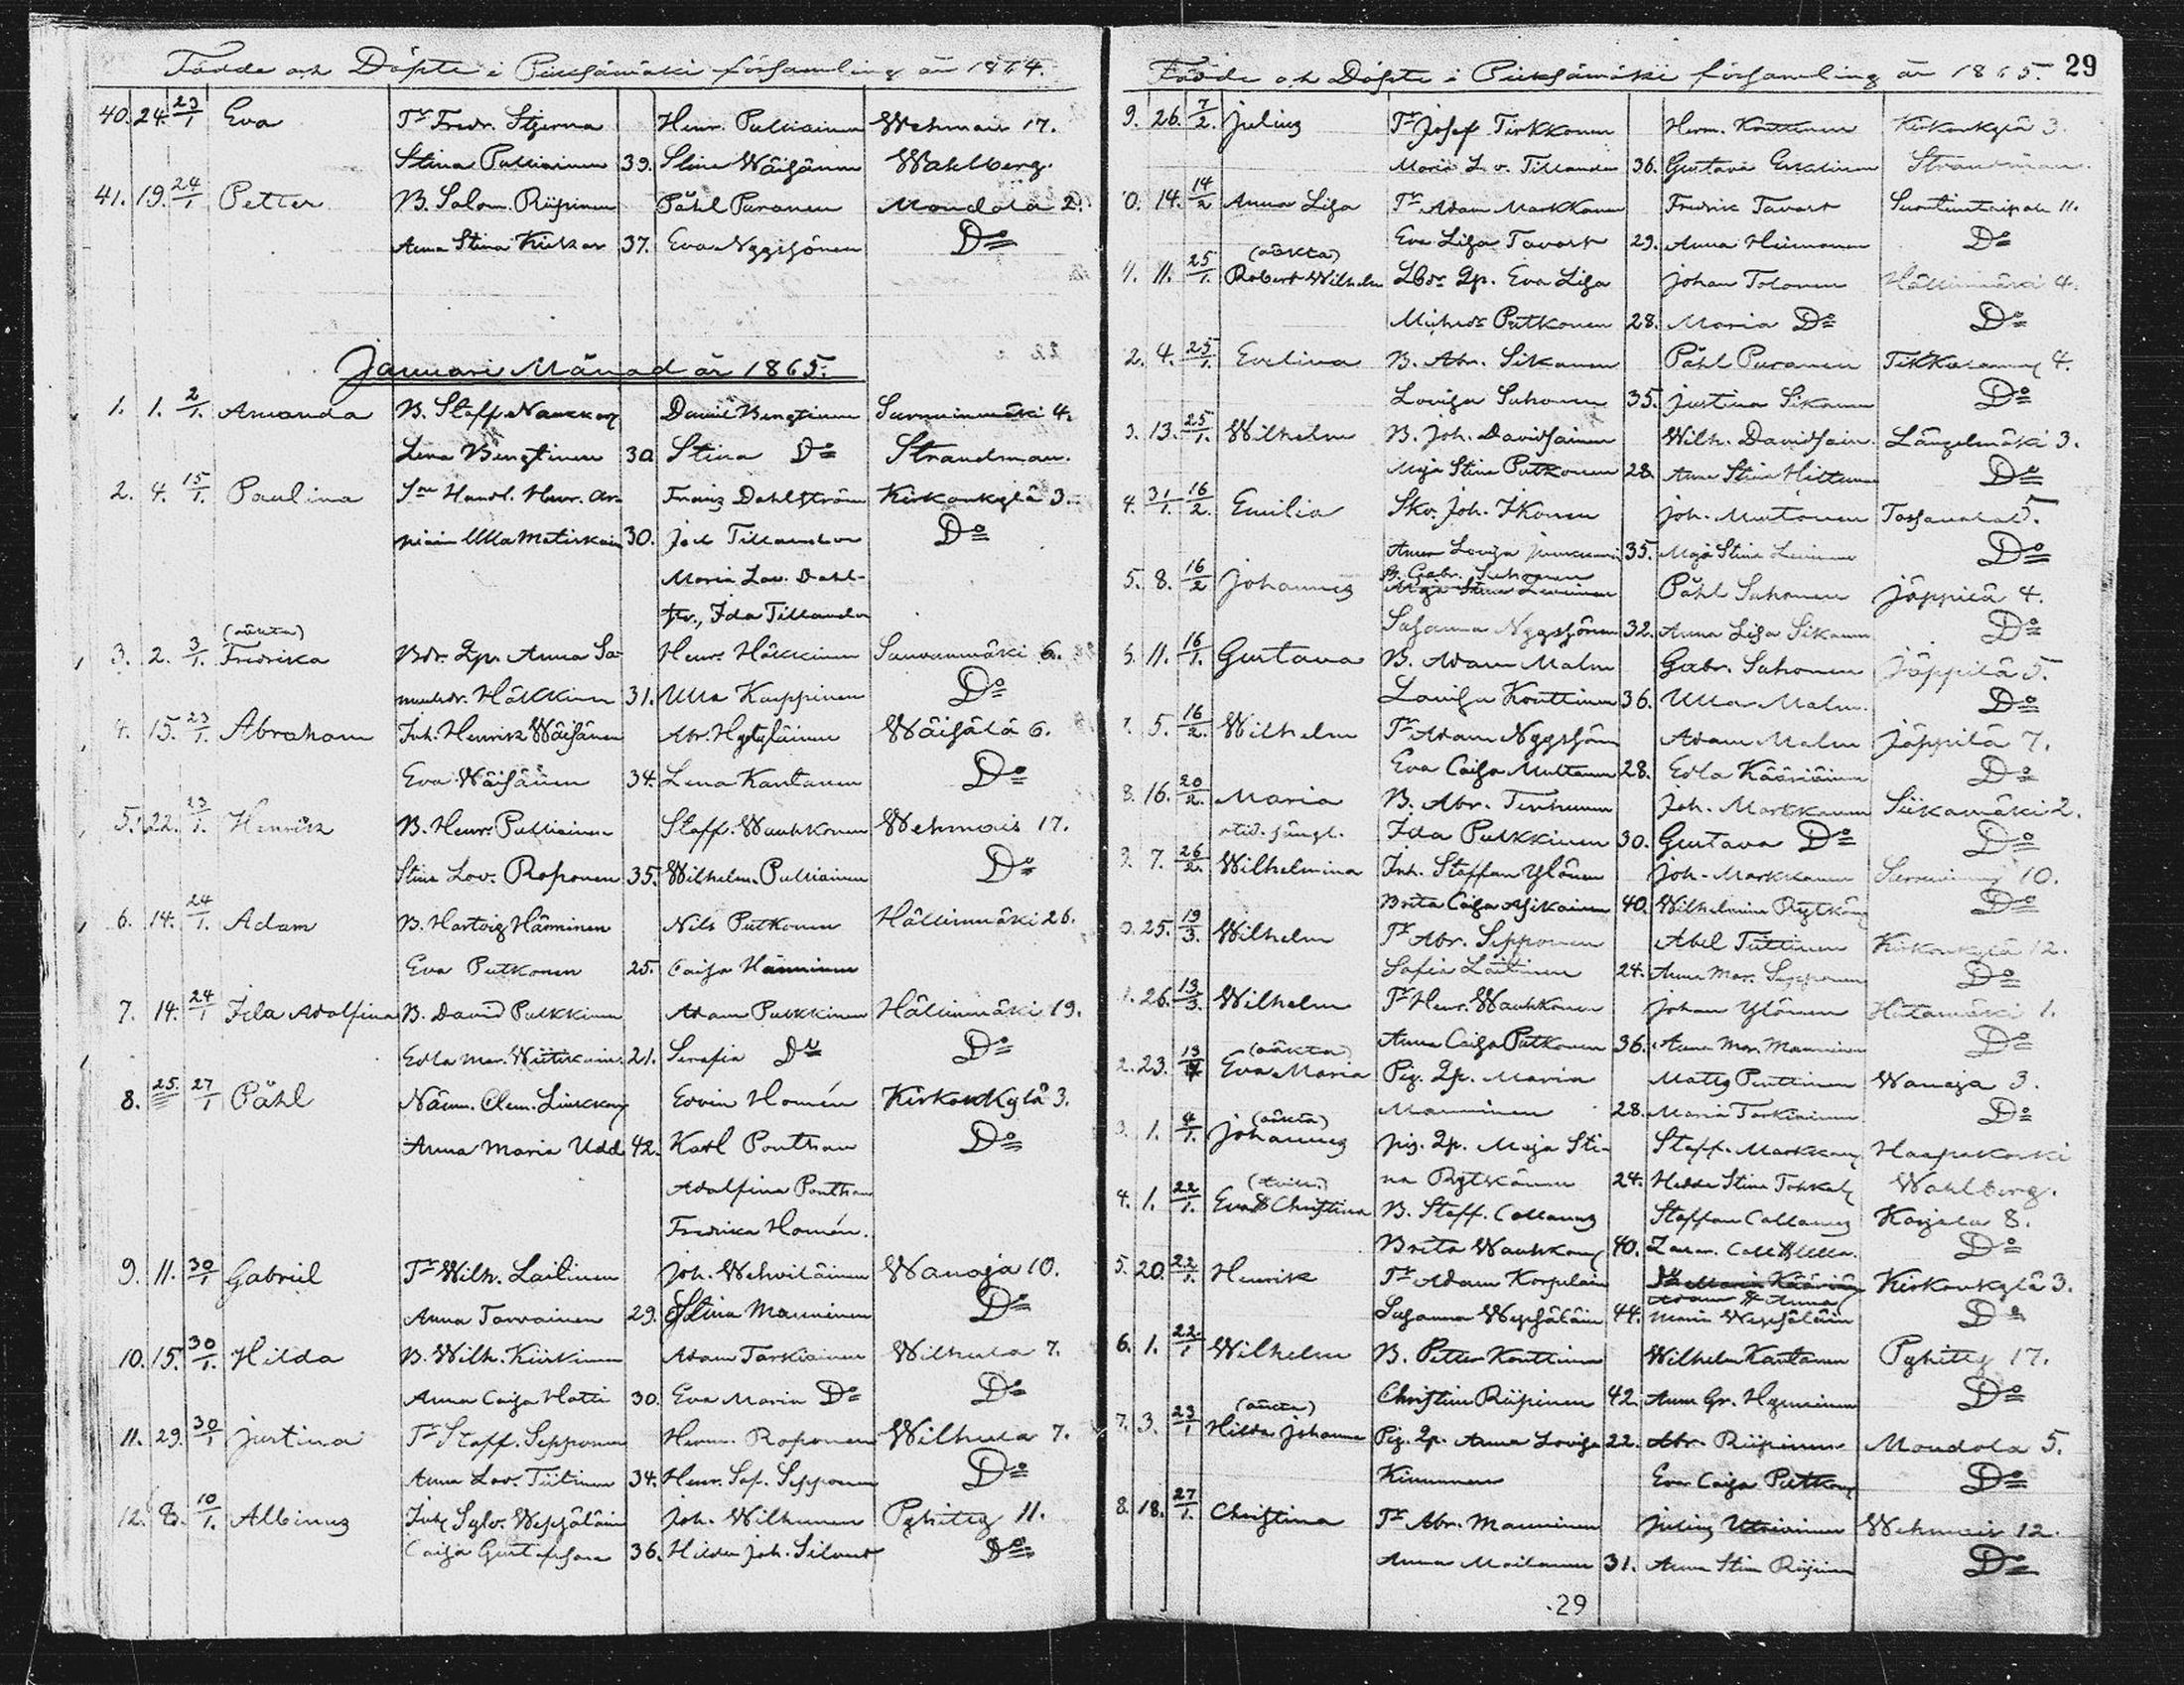 Födde och Döpte i Pieksämäki församling år 1864.
40. 24. 23/1 Eva Tr Fredr. Stjerna Henr. Pulliainen Wehmais 17.
Stina Pulliainen 39. Stina Wäisänen Wahlberg.
41. 19. 24/1 Petter B. Salom. Riipinen Påhl Puranen Mondola 2.
Anna Stina Kukar 37. Eva Nyyssönen Do
Januari Månad år 1865.
1. 1. 2/1. Amanda B. Staff. Naukkar Daniel Bengtinen 4.
Lena Bengtinen 30 Stina Do Strandman.
2. 4. 15/1. Paulina Handl. Henr. Ar- Franz Dahlström Kirkonkylä 3.
niain Ulla Matiskain 30. Joh Tillander Do
Maria Lov. Dahl-
str., Ida Tillander
(oäkta)
3. 2. 3/1. Fredrika Bdr. Qp. Anna Sa- Henr. Häkkinen 6.
muelsdr. Häkkinen 31. Ulla Kauppinen Do
4. 15. 23/1. Abraham Inh. Henrik Wäisänen Abr. Hytyläinen Wäisälä 6.
Eva Wäisänen 34. Lena Kantanen Do
5. 22. 23/1. Henrik B. Henr. Pulliainen Staff. Wauhkonen Wehmais 17.
Stina Lov. Roponen 35. Wilhelm. Pulliainen Do
6. 14. 24/1. Adam B. Hartvig Hänninen Nils Putkonen Hällinmäki 26.
Eva Putkonen 25. Caisa Hänninen
7. 14. 24/1 Ida Adolfina B. David Pulkkinen Adam Pulkkinen Hällinmäki 19.
Edla Mar. Wiitikain. 21. Serafia Do Do
8. 25. 27/1 Påhl Näm. Clem. Linkkon Edvin Homén Kirkonkylä 3.
Anna Maria Udd 42. Karl Ponthan Do
Adolfina Ponthan
Fredrika Homén.
9. 11. 30/1 Gabriel Tr Wilh. Laitinen Joh. Wehviläinen Wanaja 10.
Anna Tarvainen 29. Stina Manninen Do
10. 15. 30/1. Hilda B. Wilh. Kiukinen Adam Tarkiainen Wilhula 7.
Anna Caisa Hatti 30. Eva Maria Do Do
11. 29. 30/1 Justina Tr Staff. Sepponen Herm. Roponen Wilhula 7.
Anna Lov. Tiitinen 34. Henr. Sof. Sepponen Do
12. 8. 10/1. Albinus Inh Sylv. Wepsäläin Joh. Wilhunen Pyhitty 11.
Caisa Gustafsson 36. Hilda Joh. Silvast Do
Födde och Döpte i Pieksämäki församling år 1865. 29
9. 26. 7/2. Julius Tr Josef Tirkkonen Herm. Konttinen Kirkonkylä 3.
Maria L. v. Tillander 36. Gustava Strandman.
0. 14. 14/2 Anna Lisa Tr Adam Markkanen Fredric Tavast 11.
Eva Lisa Tavast 29. Anna Heimonen Do
(oäkta)
11. 25/1. Robert Wilhelm Qp. Eva Lisa Johan Tolonen Hällinmäki 4.
Putkonen 28. Maria Do Do
2. 4. 25/1. Evelina B. Abr. Sikanen Påhl Puranen 4.
Lovisa Suhonen 35. Justina Sikanen Do
3. 13. 25/1. Wilhelm B. Joh. Davidsainen Wilh. Davidsain. Längelmäki 3.
Maja Stina Putkonen 28. Anna Stina Hiltunen Do
4. 31/1. 16/2. Emilia Sko. Joh. Ikonen Joh. Mutonen 5.
Anna Lovisa 35. Maja Stina Do
5. 8. 16/2 Johannes B. Gabr. Suhonen Påhl Suhonen Jäppilä 4.
Susanna Nyyssönen 32. Anna Lisa Sikanen Do
6. 11. 16/1. Gustava B. Adam Malm Gabr. Suhonen Jäppilä 5.
Lovisa Konttinen 36. Ulla Malm. Do
5. 16/2. Wilhelm Tr Adam Nyyssön Adam Malm Jäppilä 7.
Eva Caisa Multanen 28. Edla Kääriäinen Do
8. 16. 20/2. Maria B. Abr. Tenhunen Joh. Markkanen Siikamäki 2.
Ida Pulkkinen 30. Gustava Do Do
9. 7. 26/2. Wilhelmina Inh. Staffan Ylönen Joh. Markkanen 10.
Brita Caisa Asikainen 40. Wilhelmina Rytkön Do
0. 25. 19/3. Wilhelm Tr Abr. Sepponen Abel Tiittinen Kirkonkylä 12.
Sofia Laitinen 24. Anna Mar. Sepponen Do
1. 26. 13/3. Wilhelm Tr Henr. Wauhkonen Johan Ylönen 1.
Anna Caisa Putkonen 36. Anna Mar. Manninen Do
(oäkta)
2. 23. Eva Maria Pig. Qp. Maria Matts Penttinen Wanaja 3.
Manninen 28. Maria Tarkiainen Do
(oäkta)
3. 1. 4/1. Johannes Pig. Qp. Maja Sti- Staff. Markkan Haapakoski
na Rytkönen 24. Hedda Stina Wahlberg.
4. 1. 22/1. Eva Christina B. Staff. Collanus Staffan Collanus 8.
Brita Wauhkon 40. Do
5. 20. 22/1. Henrik Tr Adam Korpelain Kirkonkylä 3.
Susanna Wepsäläin 44. Maria Wepsäläin Do
6. 1. 22/1 Wilhelm B. Petter Konttinen Wilhelm Kantanen Pyhitty 17.
Christina Riipinen 42. Anna Gr. Hyvönen Do
(oäkta)
7. 3. 23/1 Hilda Johanna Pig. Qp. Anna Lovisa 22. Abr. Riipinen Mondola 5.
Kinnunen Eva Caisa Putkon Do
8. 18. 27/1. Christina Tr Abr. Manninen Julius Utriainen Wehmais 12.
Anna Moilanen 31. Anna Stina Riipinen Do
29